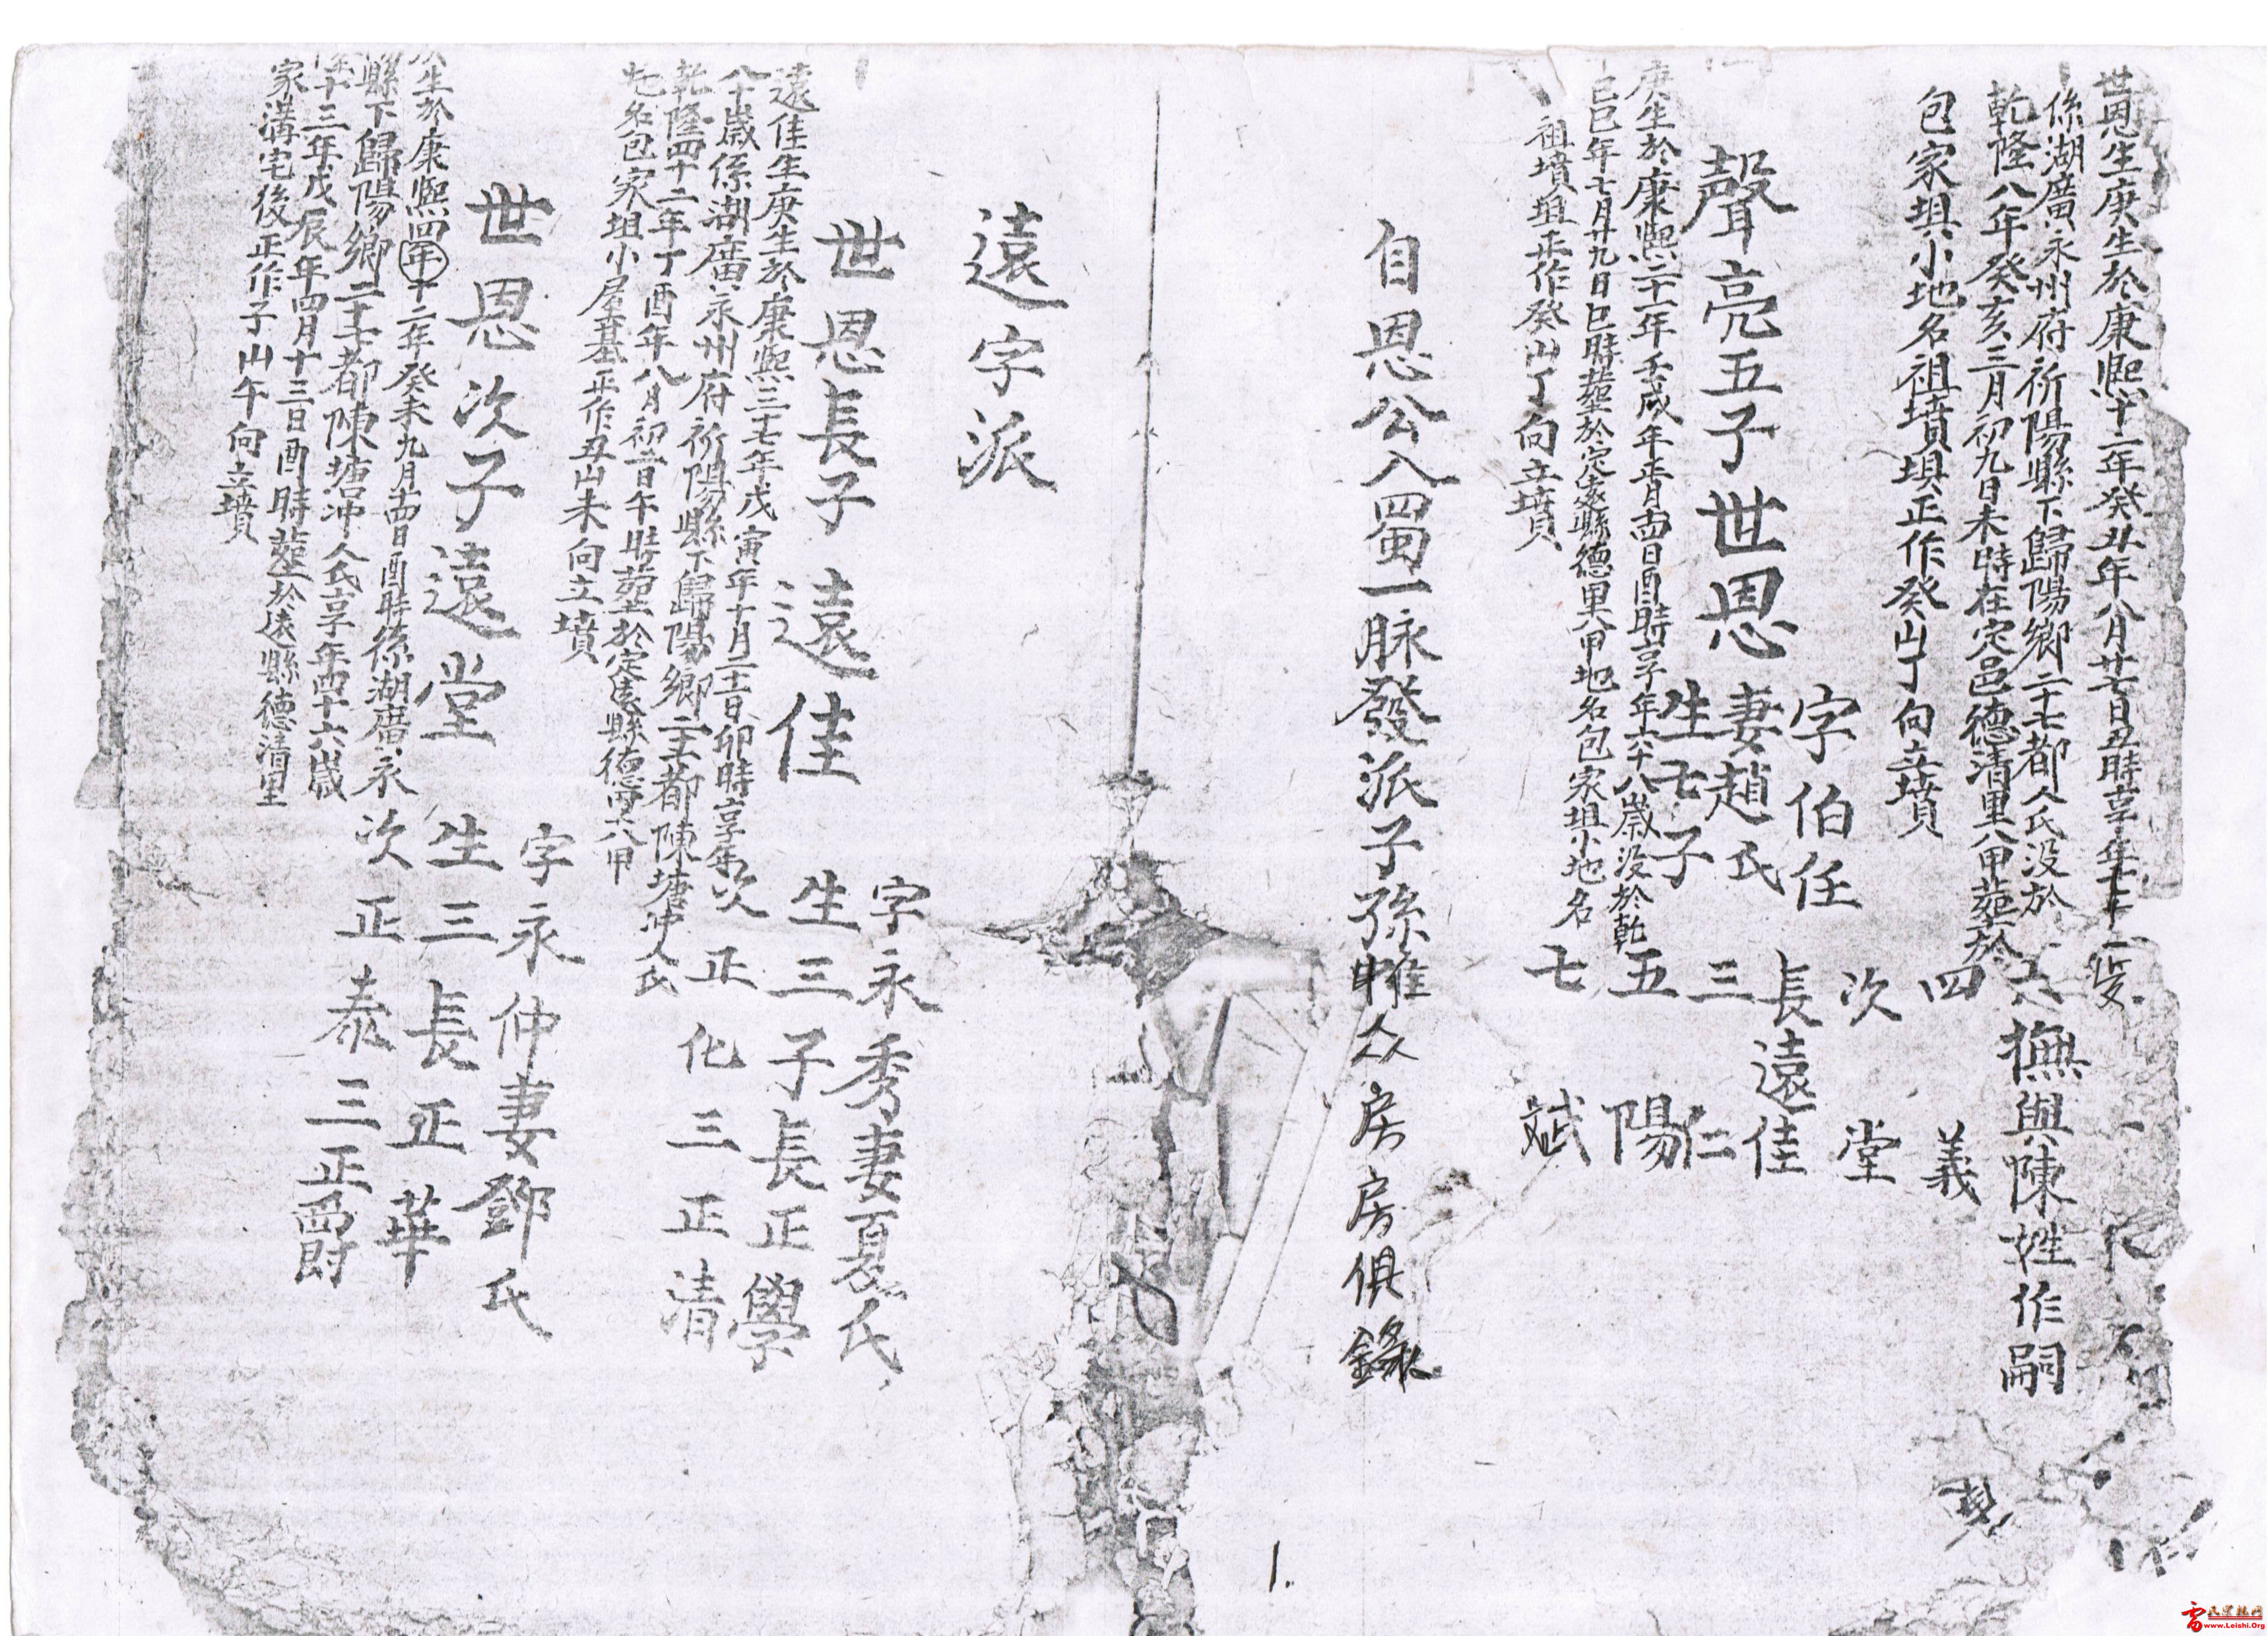 世恩生庚生於康熙十二年癸丑年八月廿七日丑時享年七十一歲
係湖廣永州府祈陽縣下歸陽鄉二十七都人氏没於
乾隆八年癸亥三月初九日未時在定邑德清里八甲塟於
包家垻小地名祖墳垻正作癸山丁向立墳
聲亮五子世恩
字伯任
妻趙氏
生七子
長遠佳
次 堂
三 仁
四 義
五 陽
六 撫與陳姓作嗣
七 斌
庚生於康熙二十一年壬戌年正月十四日酉時享年六十八歲没於乾
己巳年七月廿九日巳時塟於定遠縣德里八甲地名包家垻小地名
祖墳垻正作癸山丁向立墳
自恩公入蜀一脉發派子孫惟众房房俱錄
1.
遠字派
世恩長子遠佳
字永秀妻夏氏
生三子長正學
次正化三正清
遠佳生庚生於康熙三十七年戊寅年十月二十三日卯時享年
八十歲係湖廣永州府祈陽縣下歸陽鄉二十七都陳塘冲人氏
乾隆四十二年丁酉年八月初三日午時塟於定遠縣德里八甲
地名包家垻小屋基正作丑山未向立墳
世恩次子遠堂
字永仲妻鄧氏
生三長正華
次正泰三正爵
生於康熙四十二年癸未九月十四日酉時係湖廣永
縣下歸陽鄉二十七都陳塘冲人氏享年四十六歲
十三年戊辰年四月十三日酉時塟於遠縣德清里
家溝宅後正作子山午向立墳
www.Leishi.Org